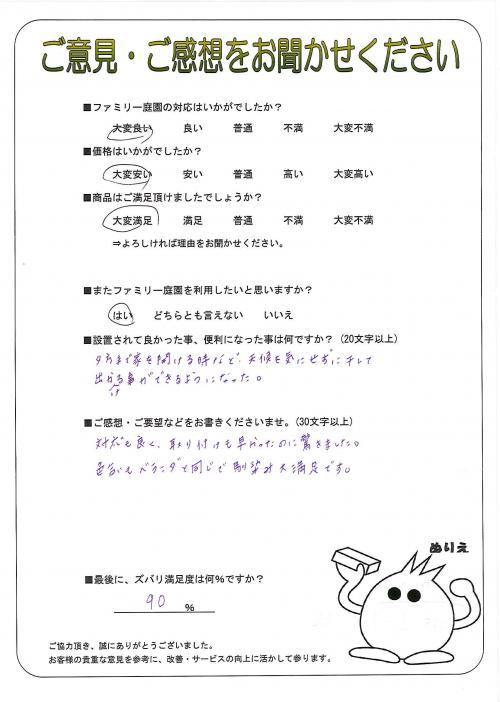 ご意見・ご感想をお聞かせください
■ファミリー庭園の対応はいかがでしたか？
大変良い 良い 普通 不満 大変不満
■価格はいかがでしたか？
大変安い 安い 普通 高い 大変高い
■商品はご満足頂けましたでしょうか？
大変満足 満足 普通 不満 大変不満
⇒よろしければ理由をお聞かせください。
■またファミリー庭園を利用したいと思いますか？
はい どちらとも言えない いいえ
■設置されて良かった事、便利になった事は何ですか？（20文字以上）
夕方まで家を開ける時など、天候を気にせずに干して
出かける事ができるようになった。
■ご感想・ご要望などをお書きくださいませ。（30文字以上）
対応も良く、取り付けも早かったのに驚きました。
色合いもベランダと同じで馴染み大満足です。
ぬりえ
■最後に、ズバリ満足度は何％ですか？
90 ％
ご協力頂き、誠にありがとうございました。
お客様の貴重な意見を参考に、改善・サービスの向上に活かして参ります。